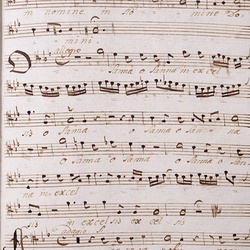 in nomine in no mine Do
mini.
allegro
Osanna o Sanna in excel
sis o Sanna o Sanna o Sanna na
o Sanna o Sanna o San
na in excel
in excel sis ex cel sis
adagio